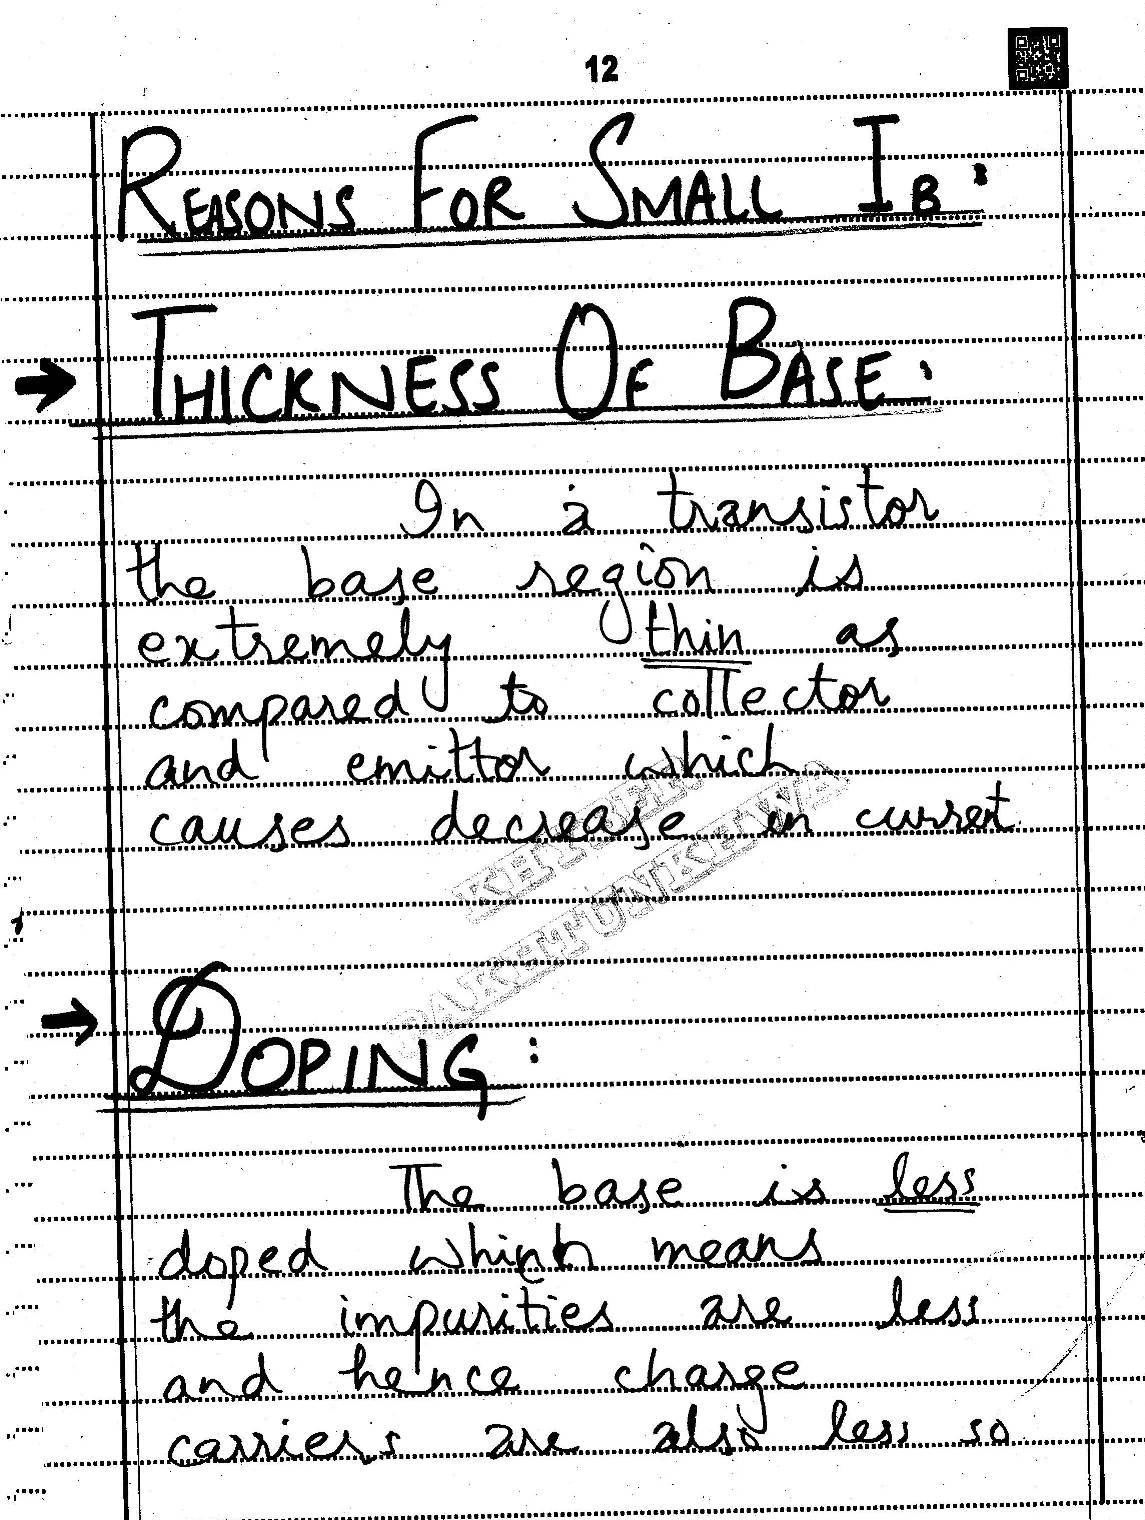 12
REASONS FOR SMALL IB:
THICKNESS OF BASE:
In a transistor
the base region is
extremely thin as
compared to collector
and emittor which
causes decrease in current.
KHYBER
PAKHTUNKHWA
DOPING:
The base is less
doped which means
the impurities are less
and hence charge
carriers are also less so